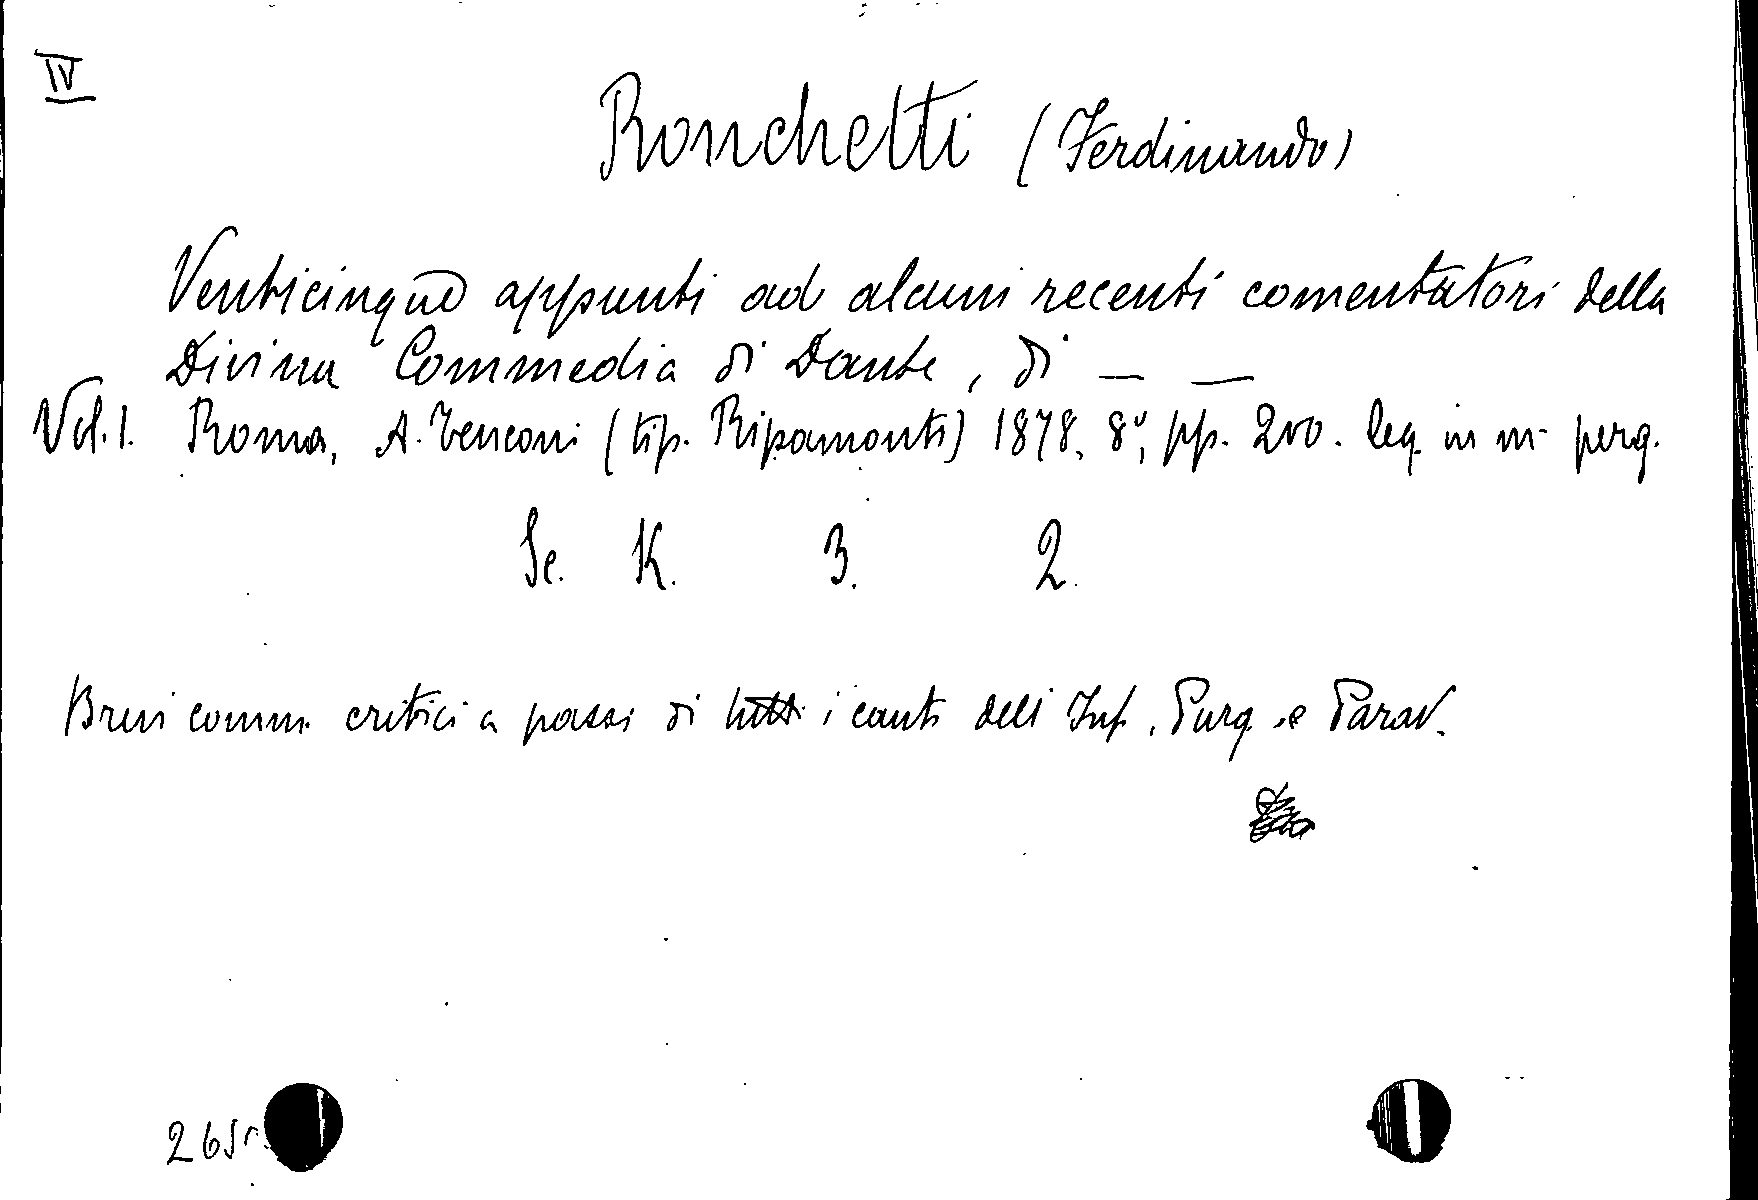 IV
Ronchetti (Ferdinando)
Venticinque appunti ad alcuni recenti comentatori della
Divina Commedia di Dante, di — —
Vol. 1. Roma, A. Tenconi (tip. Ripamonti) 1878, 8°, pp. 200. leg. in m. perg.
Se. K. 3. 2.
Brevi comm. critici a passi di tutti i canti dell Inf., Purg. e Parad.